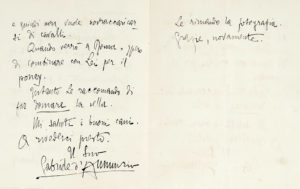 e quindi non vuole sovraccaricar-
si di cavalli.
Quando verrò a Roma spero
di combinare con Lei per il
poney.
Intanto Le raccomando di
far domare la sella.
Mi saluti i buoni cani.
A rivederci presto.
Il Suo
Gabriele d'Annunzio
Le rimando la fotografia.
Grazie, novamente.